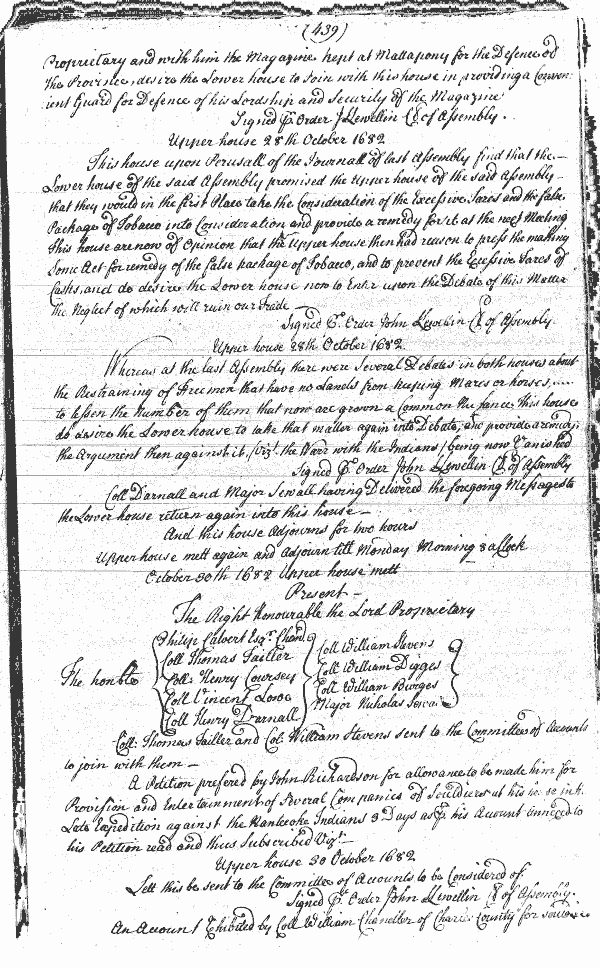 (439)
Proprietary and with him the Magazine kept at Mattapony for the Defence of
the Province, desire the Lower house to Join with this house in providing a Conven-
ient Guard for Defence of his Lordship and Security of the Magazine
Signed P. Order J Llewellin Cl of Assembly.
Upper house 28th October 1682
This house upon Perusall of the Journall of last Assembly find that the
Lower house of the said Assembly promised the Upper house of the said Assembly
that they would in the first Place take the Consideration of the Excessive Tares and the false
Package of Tobacco into Consideration and provide a remedy for it at the next Meeting
This house are now of Opinion that the Upper house then had reason to press the making
Some Act for remedy of the false package of Tobacco, and to prevent the Excessive Tares of
Casks, and do desire the Lower house now to Enter upon the Debate of this Matter
the Neglect of which will ruin our Trade
Signed P. Order John Llewellin Cl of Assembly.
Upper house 28th October 1682
Whereas at the last Assembly there were Several Debates in both houses about
the Restraining of Freemen that have no Lands from keeping Mares or horses,
to lessen the Number of them that now are grown a Common Nusance. This house
do desire the Lower house to take that matter again into Debate, and provide a remedy
the Argument then against it (vizt. the Warr with the Indians) being now Vanished
Signed P. Order John Llewellin Cl. of Assembly
Coll Darnall and Major Sewall having Delivered the foregoing Messages to
the Lower house return again into this house
And this house Adjourns for two hours
Upper house mett again and Adjourn till Monday Morning 8 a Clock
October 30th 1682 Upper house mett
Present
The Right Honourable the Lord Proprietary
The honble
Philip Calvert Esqr. Chanr.
Coll Thomas Tailler
Coll: Henry Coursey
Coll Vincent Lowe
Coll Henry Darnall
Coll William Stevens
Coll William Digges
Coll William Burges
Major Nicholas Sewall
Coll: Thomas Tailler and Col: William Stevens sent to the Committee of Accounts
to join with them
A Petition prefered by John Richardson for allowance to be made him for
Provision and Entertainment of Several Companies of Souldiers at his house in the
Late Expedition against the Nanticoke Indians 3 Days as P his Acount annexed to
his Petition read and thus Subscribed Vizt.
Upper house 30 October 1682
Lett this be sent to the Committee of Accounts to be Considered of.
Signed P. Order John Llewellin Cl of Assembly.
An Account Exhibited by Coll William Chandler of Charles County for